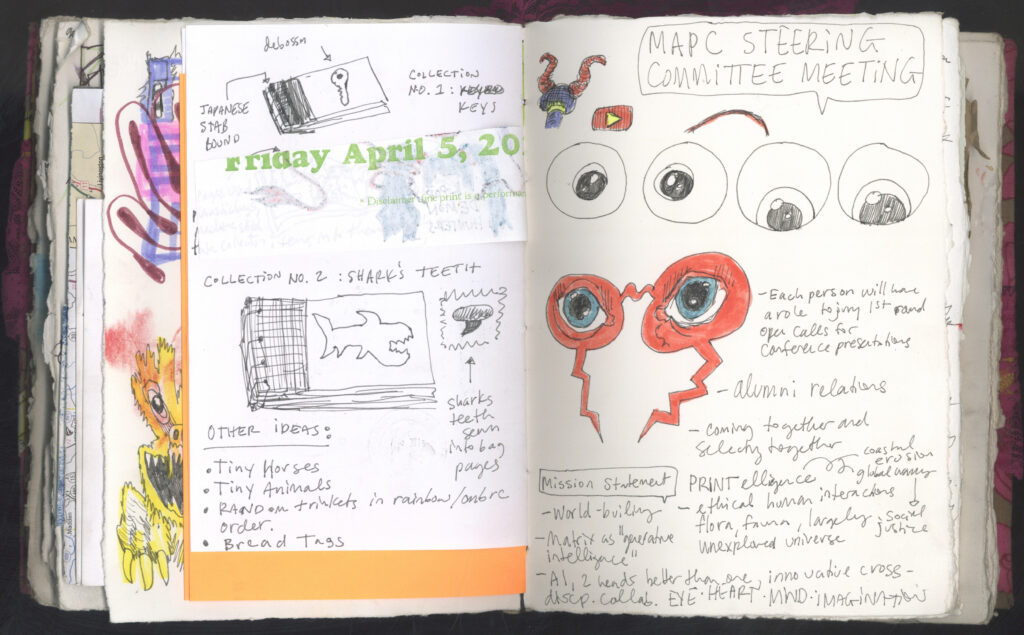 debossm
JAPANESE
STAB
BOUND
COLLECTION
NO. 1:
KEYS
Friday April 5, 20
* Disclaimer
print is a performa
COLLECTION NO. 2 : SHARK'S TEETH
sharks
teeth
sewn
into bag
pages
OTHER IDEAS:
• Tiny Horses
• Tiny Animals
• RANDOM trinkets in rainbow/ombre
order.
• Bread Tags
MAPC STEERING
COMMITTEE MEETING
- Each person will have
a role to jury 1st round
open calls for
conference presentations
- alumni relations
- coming together and
selecting together
Mission Statement
- World-builing
- Matrix as "generative
intelligence"
PRINTelligence
coastal
erosion
global warming
social
justice
- ethical human interactions
flora, fauna, largely
unexplored universe
- AI, 2 heads better than one, innovative cross-
discp. collab. EYE · HEART · MIND · IMAGINATIONS